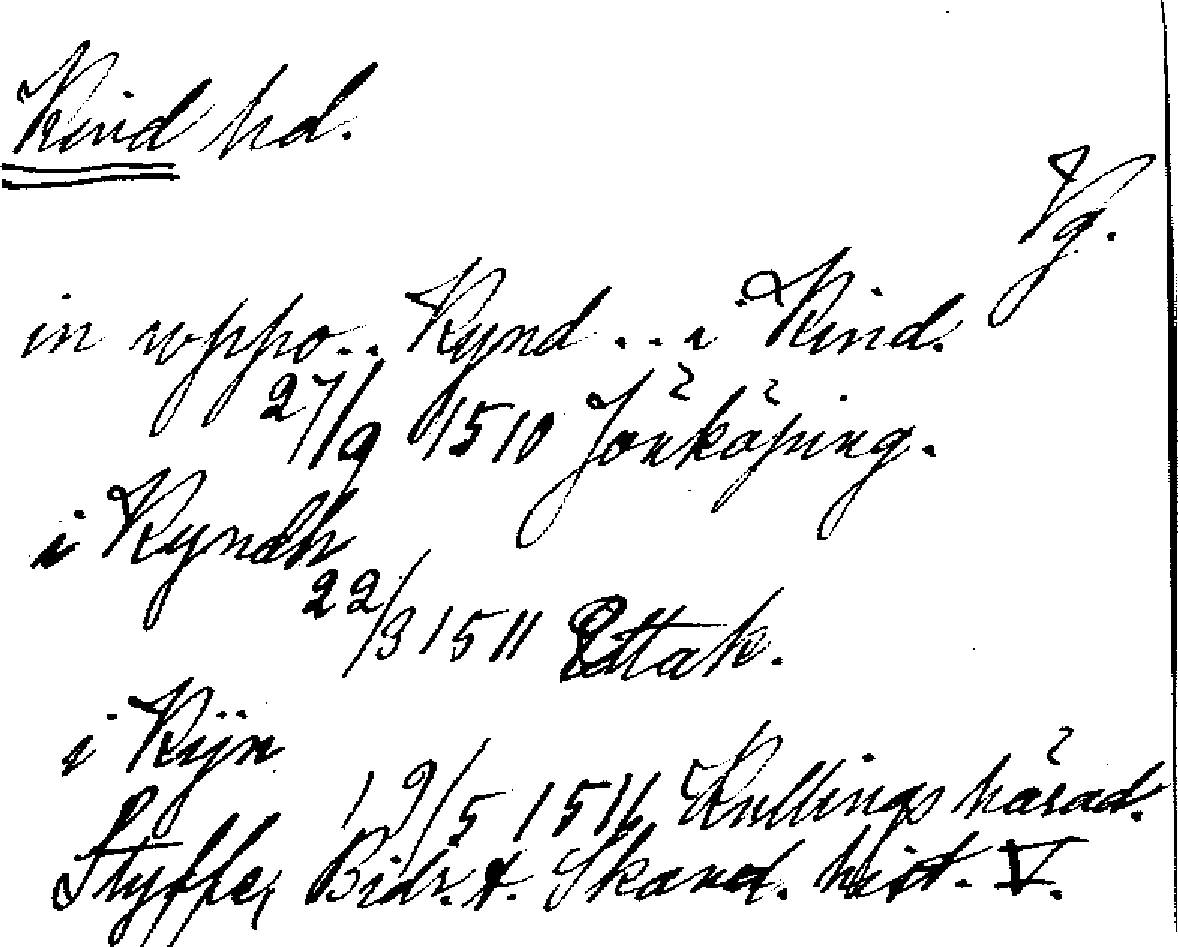 Kind hd.
Vg.
in uppo.. Kynd ... i Kind.
27/9 1510 Jönköping.
i Kyndh
22/3 1511 Ettak.
i Kijn
19/5 1511, Kullings härad.
Styffe, Bidr. t. Skand. hist. V.